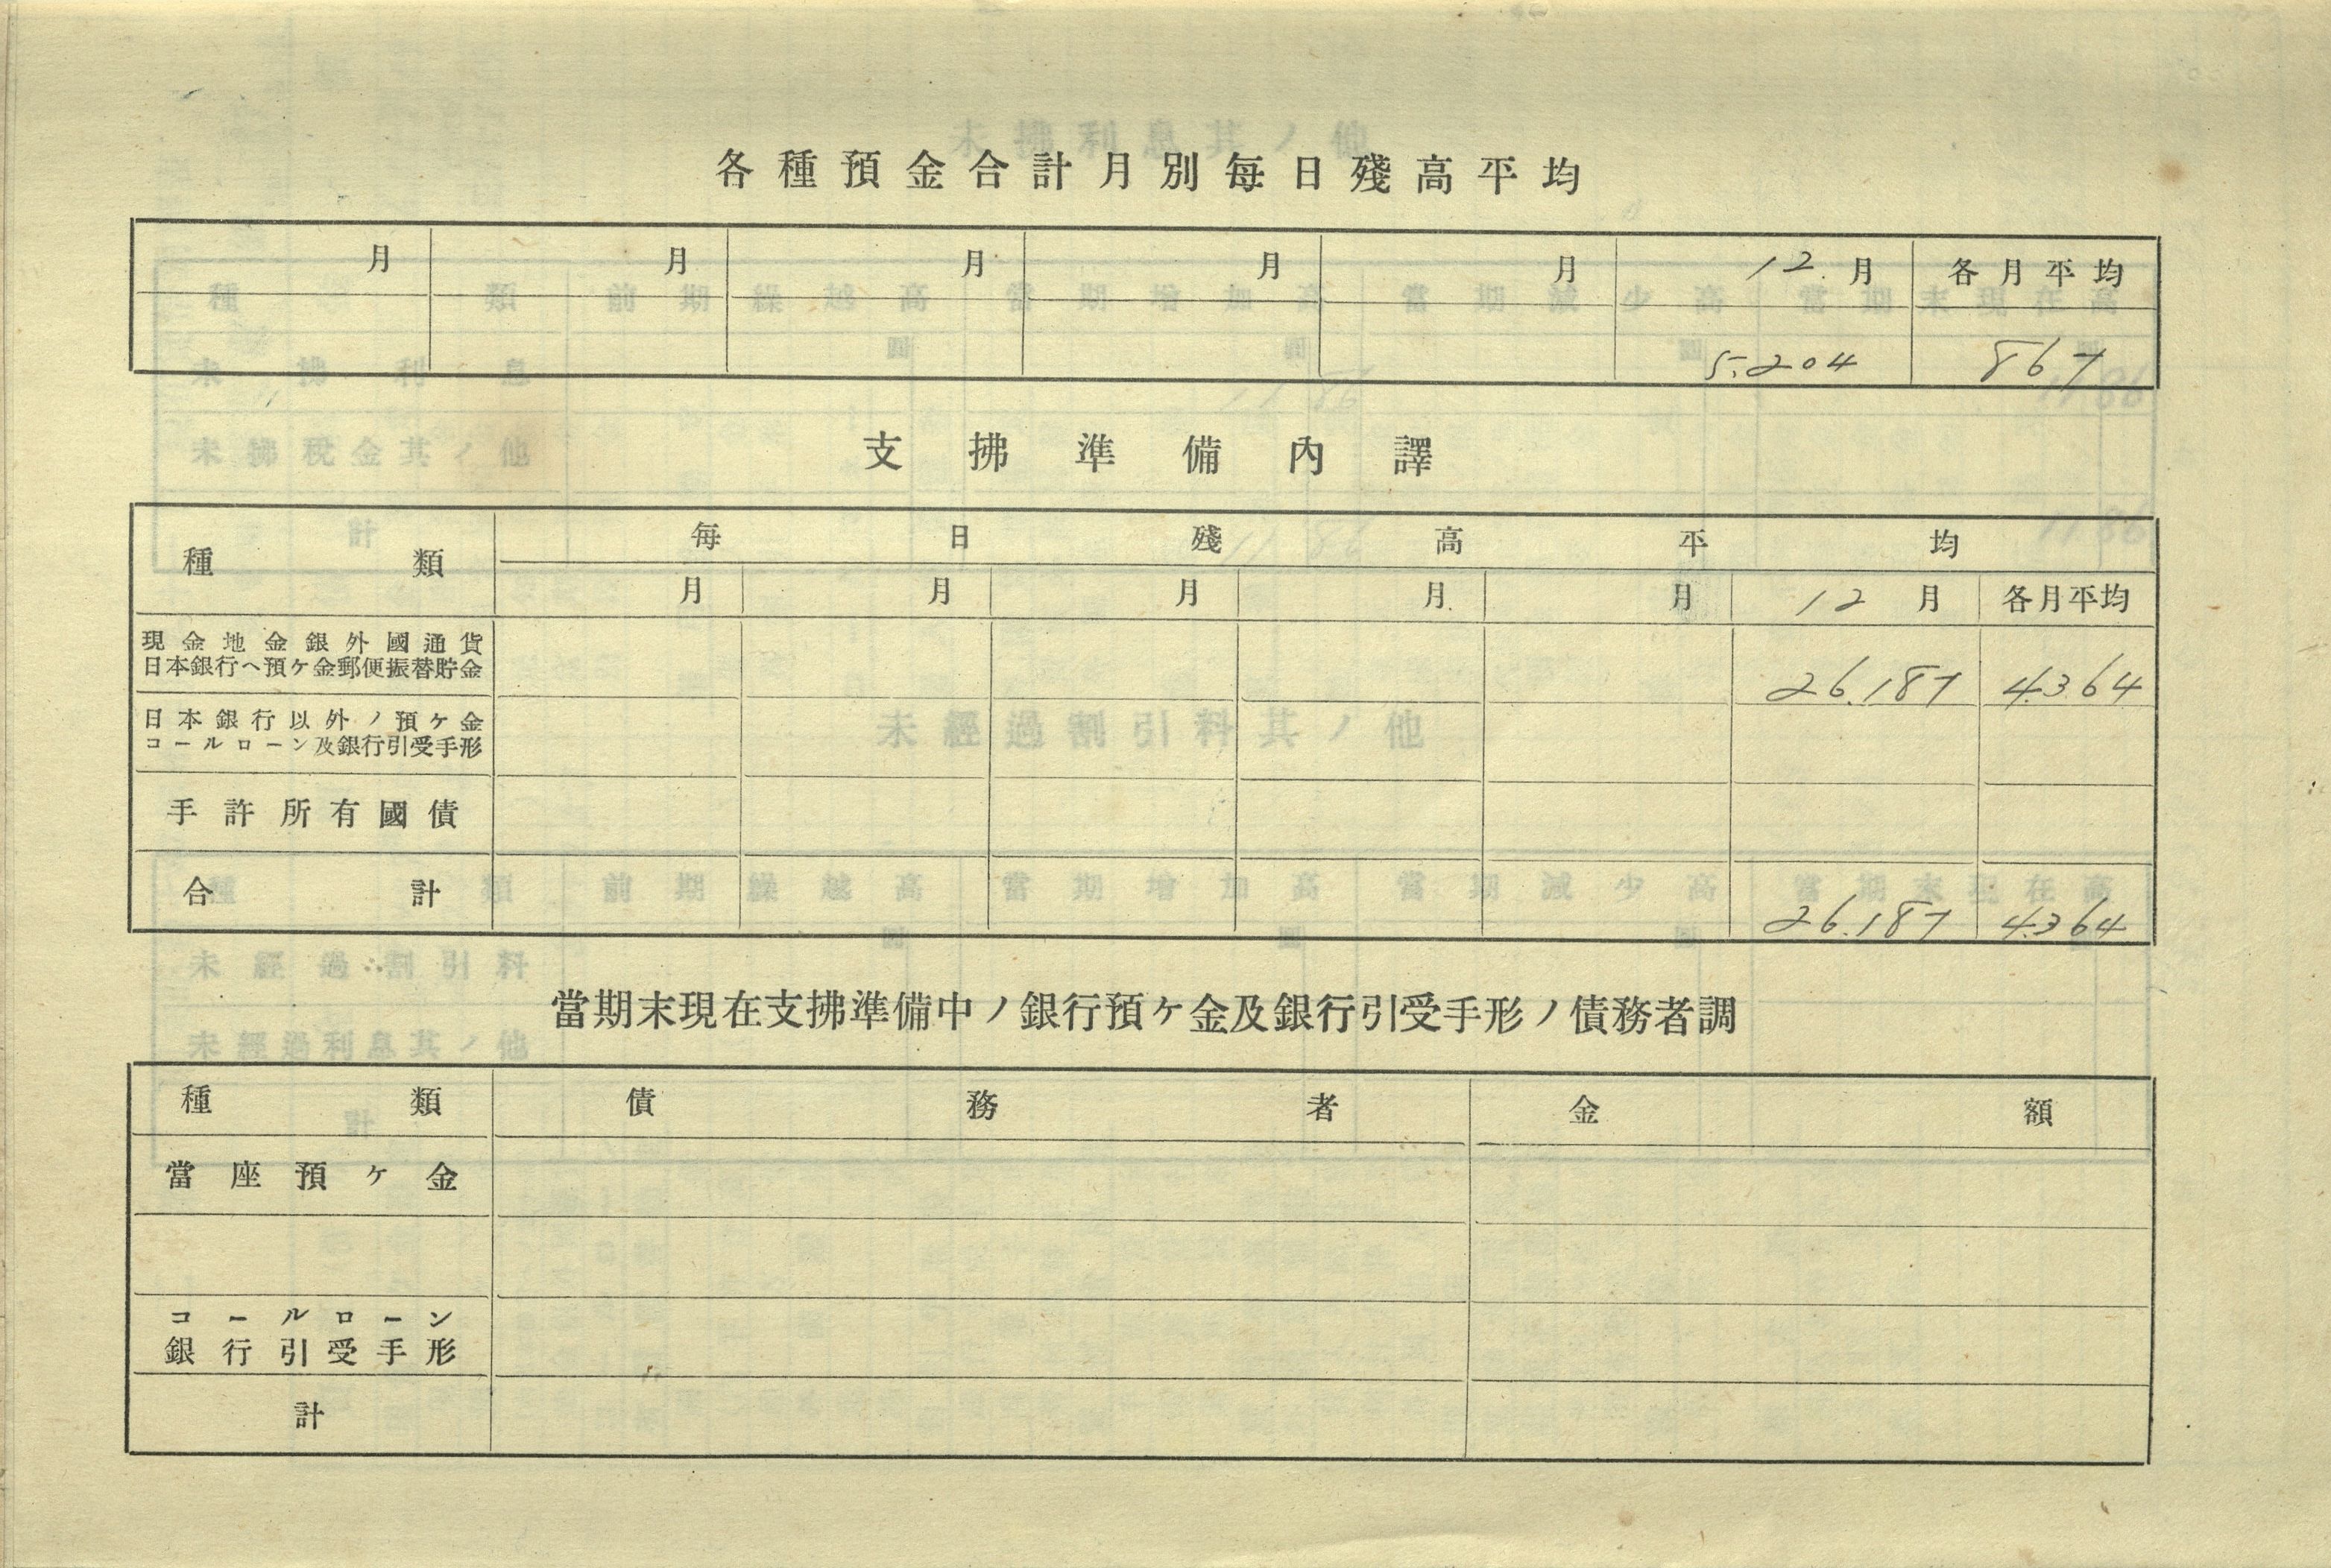 各種預金合計月別每日殘高平均
月 月 月 月 月 12月 各月平均
5.204 867
支拂準備內譯
種類 每日殘高平均
月 月 月 月 月 12月 各月平均
現金地金銀外國通貨
日本銀行ヘ預ケ金郵便振替貯金
26.187 4.364
日本銀行以外ノ預ケ金
コールローン及銀行引受手形
手許所有國債
合計 26.187 4.364
當期末現在支拂準備中ノ銀行預ケ金及銀行引受手形ノ債務者調
種類 債務者 金額
當座預ケ金
コールローン
銀行引受手形
計